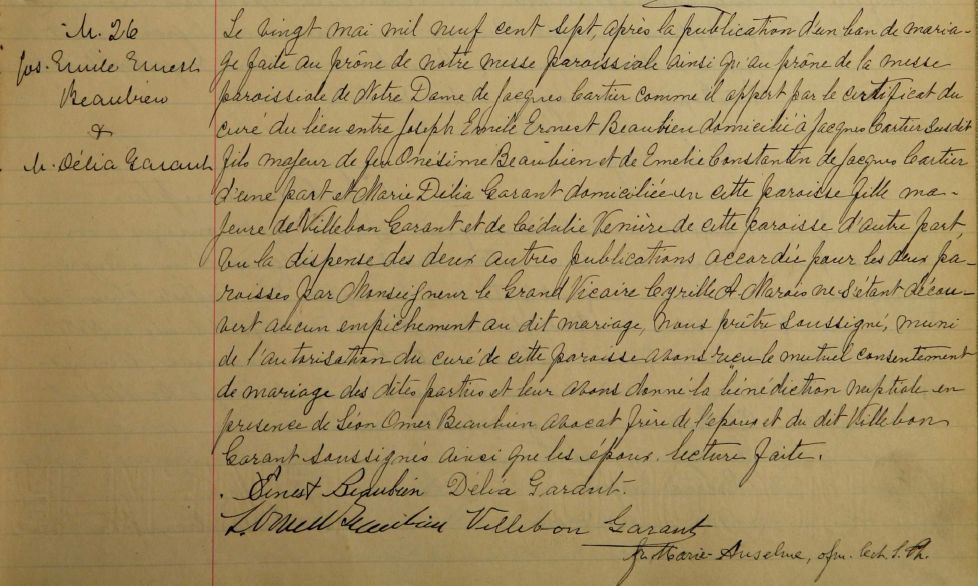 M. 26
Jos. Emile Ernest
Beaubien
&
M. Délia Garant
Le vingt mai mil neuf cent sept, après la publication d'un ban de maria-
ge faite au prône de notre messe paroissiale ainsi qu'au prône de la messe
paroissiale de Notre Dame de Jacques Cartier comme il appert par le certificat du
curé du lieu entre Joseph Emile Ernest Beaubien domicilié à Jacques Cartier susdit
fils majeur de feu Onésime Beaubien et de Emelie Constantin de Jacques Cartier
d'une part et Marie Délia Garant domiciliée en cette paroisse fille ma-
jeure de Villebon Garant et de Cédulie Venière de cette paroisse d'autre part,
vu la dispense des deux autres publications accordée pour les deux pa-
roisses par Monseigneur le Grand Vicaire Cyrille A. Marois ne s'étant décou-
vert aucun empichement au dit mariage, nous prêtre soussigné, muni
de l'autorisation du curé de cette paroisse avons reçu le mutuel consentement
de mariage des dites parties et leur avons donné la bénédiction nuptiale en
présence de Léon Omer Beaubien avocat frère de l'époux et du dit Villebon
Garant soussignés ainsi que les époux. lecture faite.
Ernest Beaubien Délia Garant.
L. Omer Beaubien Villebon Garant
fr. Marie-Anselme, ofm.